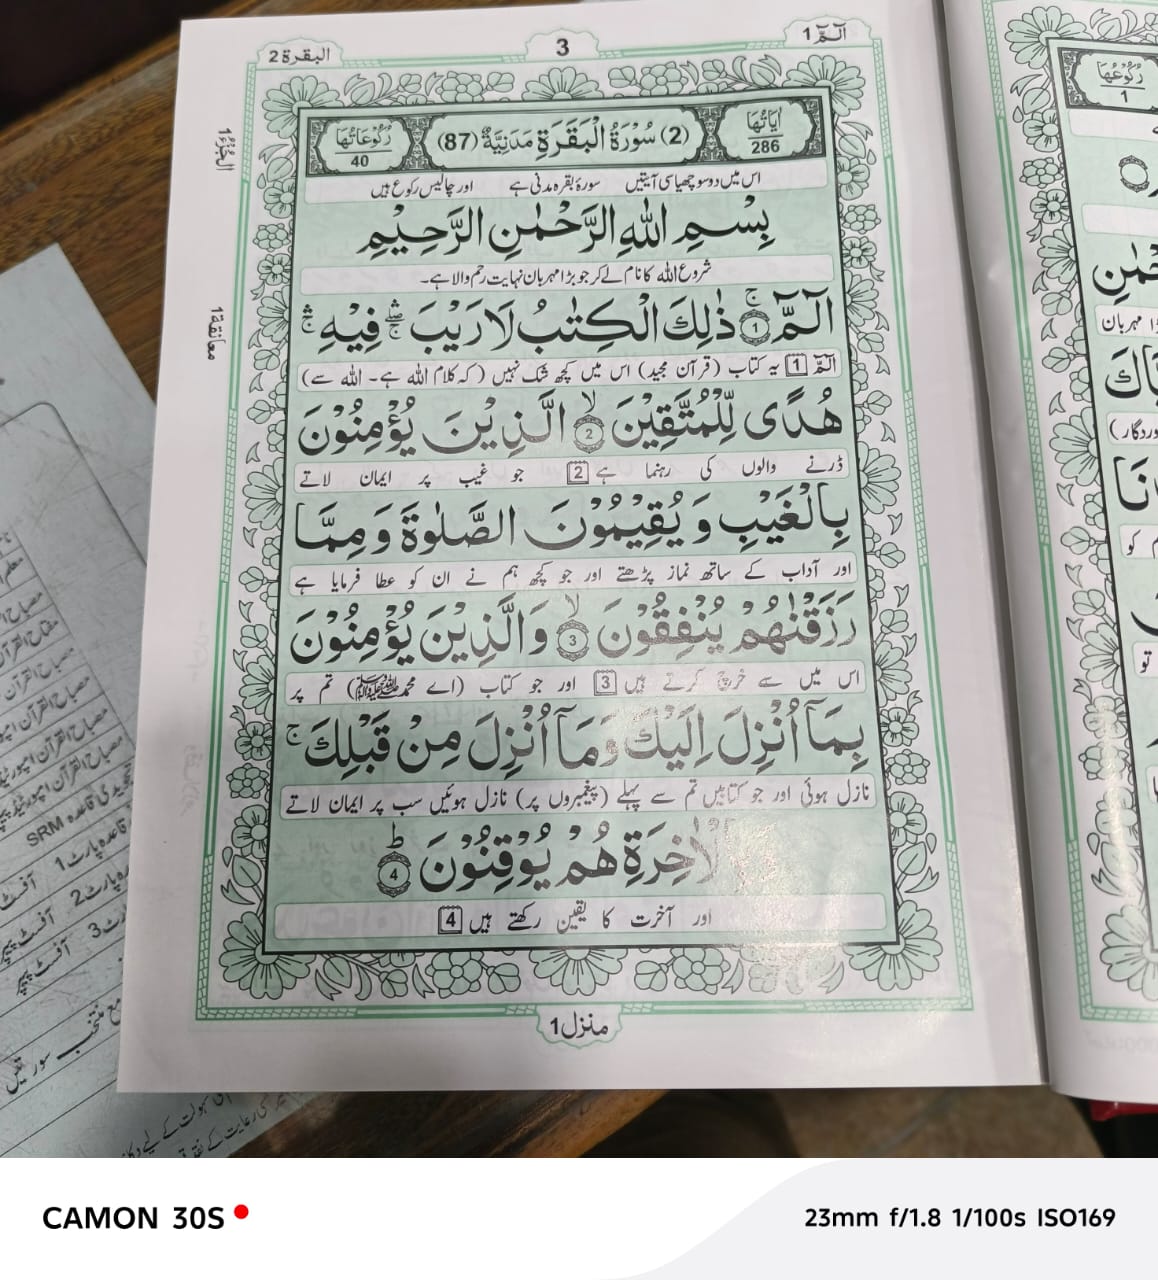 البقرة 2
3
الٓمّٓ 1
رُكُوْعَاتُهَا 40
(2) سُوْرَةُ الْبَقَرَةِ مَدَنِيَّةٌ (87)
اٰيَاتُهَا 286
اس میں دوسو چھیاسی آیتیں سورۂ بقرہ مدنی ہے اور چالیس رکوع ہیں
بِسْمِ اللّٰهِ الرَّحْمٰنِ الرَّحِيْمِ
شروع اللہ کا نام لے کر جو بڑا مہربان نہایت رحم والا ہے۔
الٓمّٓ ۚ 1 ذٰلِكَ الْكِتٰبُ لَا رَيْبَ ۛۖ فِيْهِ ۛۚ
الٓمّٓ 1 یہ کتاب (قرآن مجید) اس میں کچھ شک نہیں (کہ کلام اللہ ہے۔ اللہ سے)
هُدًى لِّلْمُتَّقِيْنَ ۙ 2 الَّذِيْنَ يُؤْمِنُوْنَ
ڈرنے والوں کی رہنما ہے 2 جو غیب پر ایمان لاتے
بِالْغَيْبِ وَيُقِيْمُوْنَ الصَّلٰوةَ وَمِمَّا
اور آداب کے ساتھ نماز پڑھتے اور جو کچھ ہم نے ان کو عطا فرمایا ہے
رَزَقْنٰهُمْ يُنْفِقُوْنَ ۙ 3 وَالَّذِيْنَ يُؤْمِنُوْنَ
اس میں سے خرچ کرتے ہیں 3 اور جو کتاب (اے محمد ﷺ) تم پر
بِمَآ اُنْزِلَ اِلَيْكَ وَمَآ اُنْزِلَ مِنْ قَبْلِكَ ۚ
نازل ہوئی اور جو کتابیں تم سے پہلے (پیغمبروں پر) نازل ہوئیں سب پر ایمان لاتے
لْاٰخِرَةِ هُمْ يُوْقِنُوْنَ ؕ 4
اور آخرت کا یقین رکھتے ہیں 4
منزل 1
اَلْجُزْءُ 1
معانقة 1
رُكُوْعُهَا
1
حْمٰنِ
ڑا مہربان
يَّاكَ
وردگار)
م کو
تو
SRM قاعدہ
قاعدہ پارٹ 1 آفسٹ
پارٹ 2 آفسٹ پیپر
3 آفسٹ پیپر
مع منتخب سورتیں
CAMON 30S
23mm f/1.8 1/100s ISO169